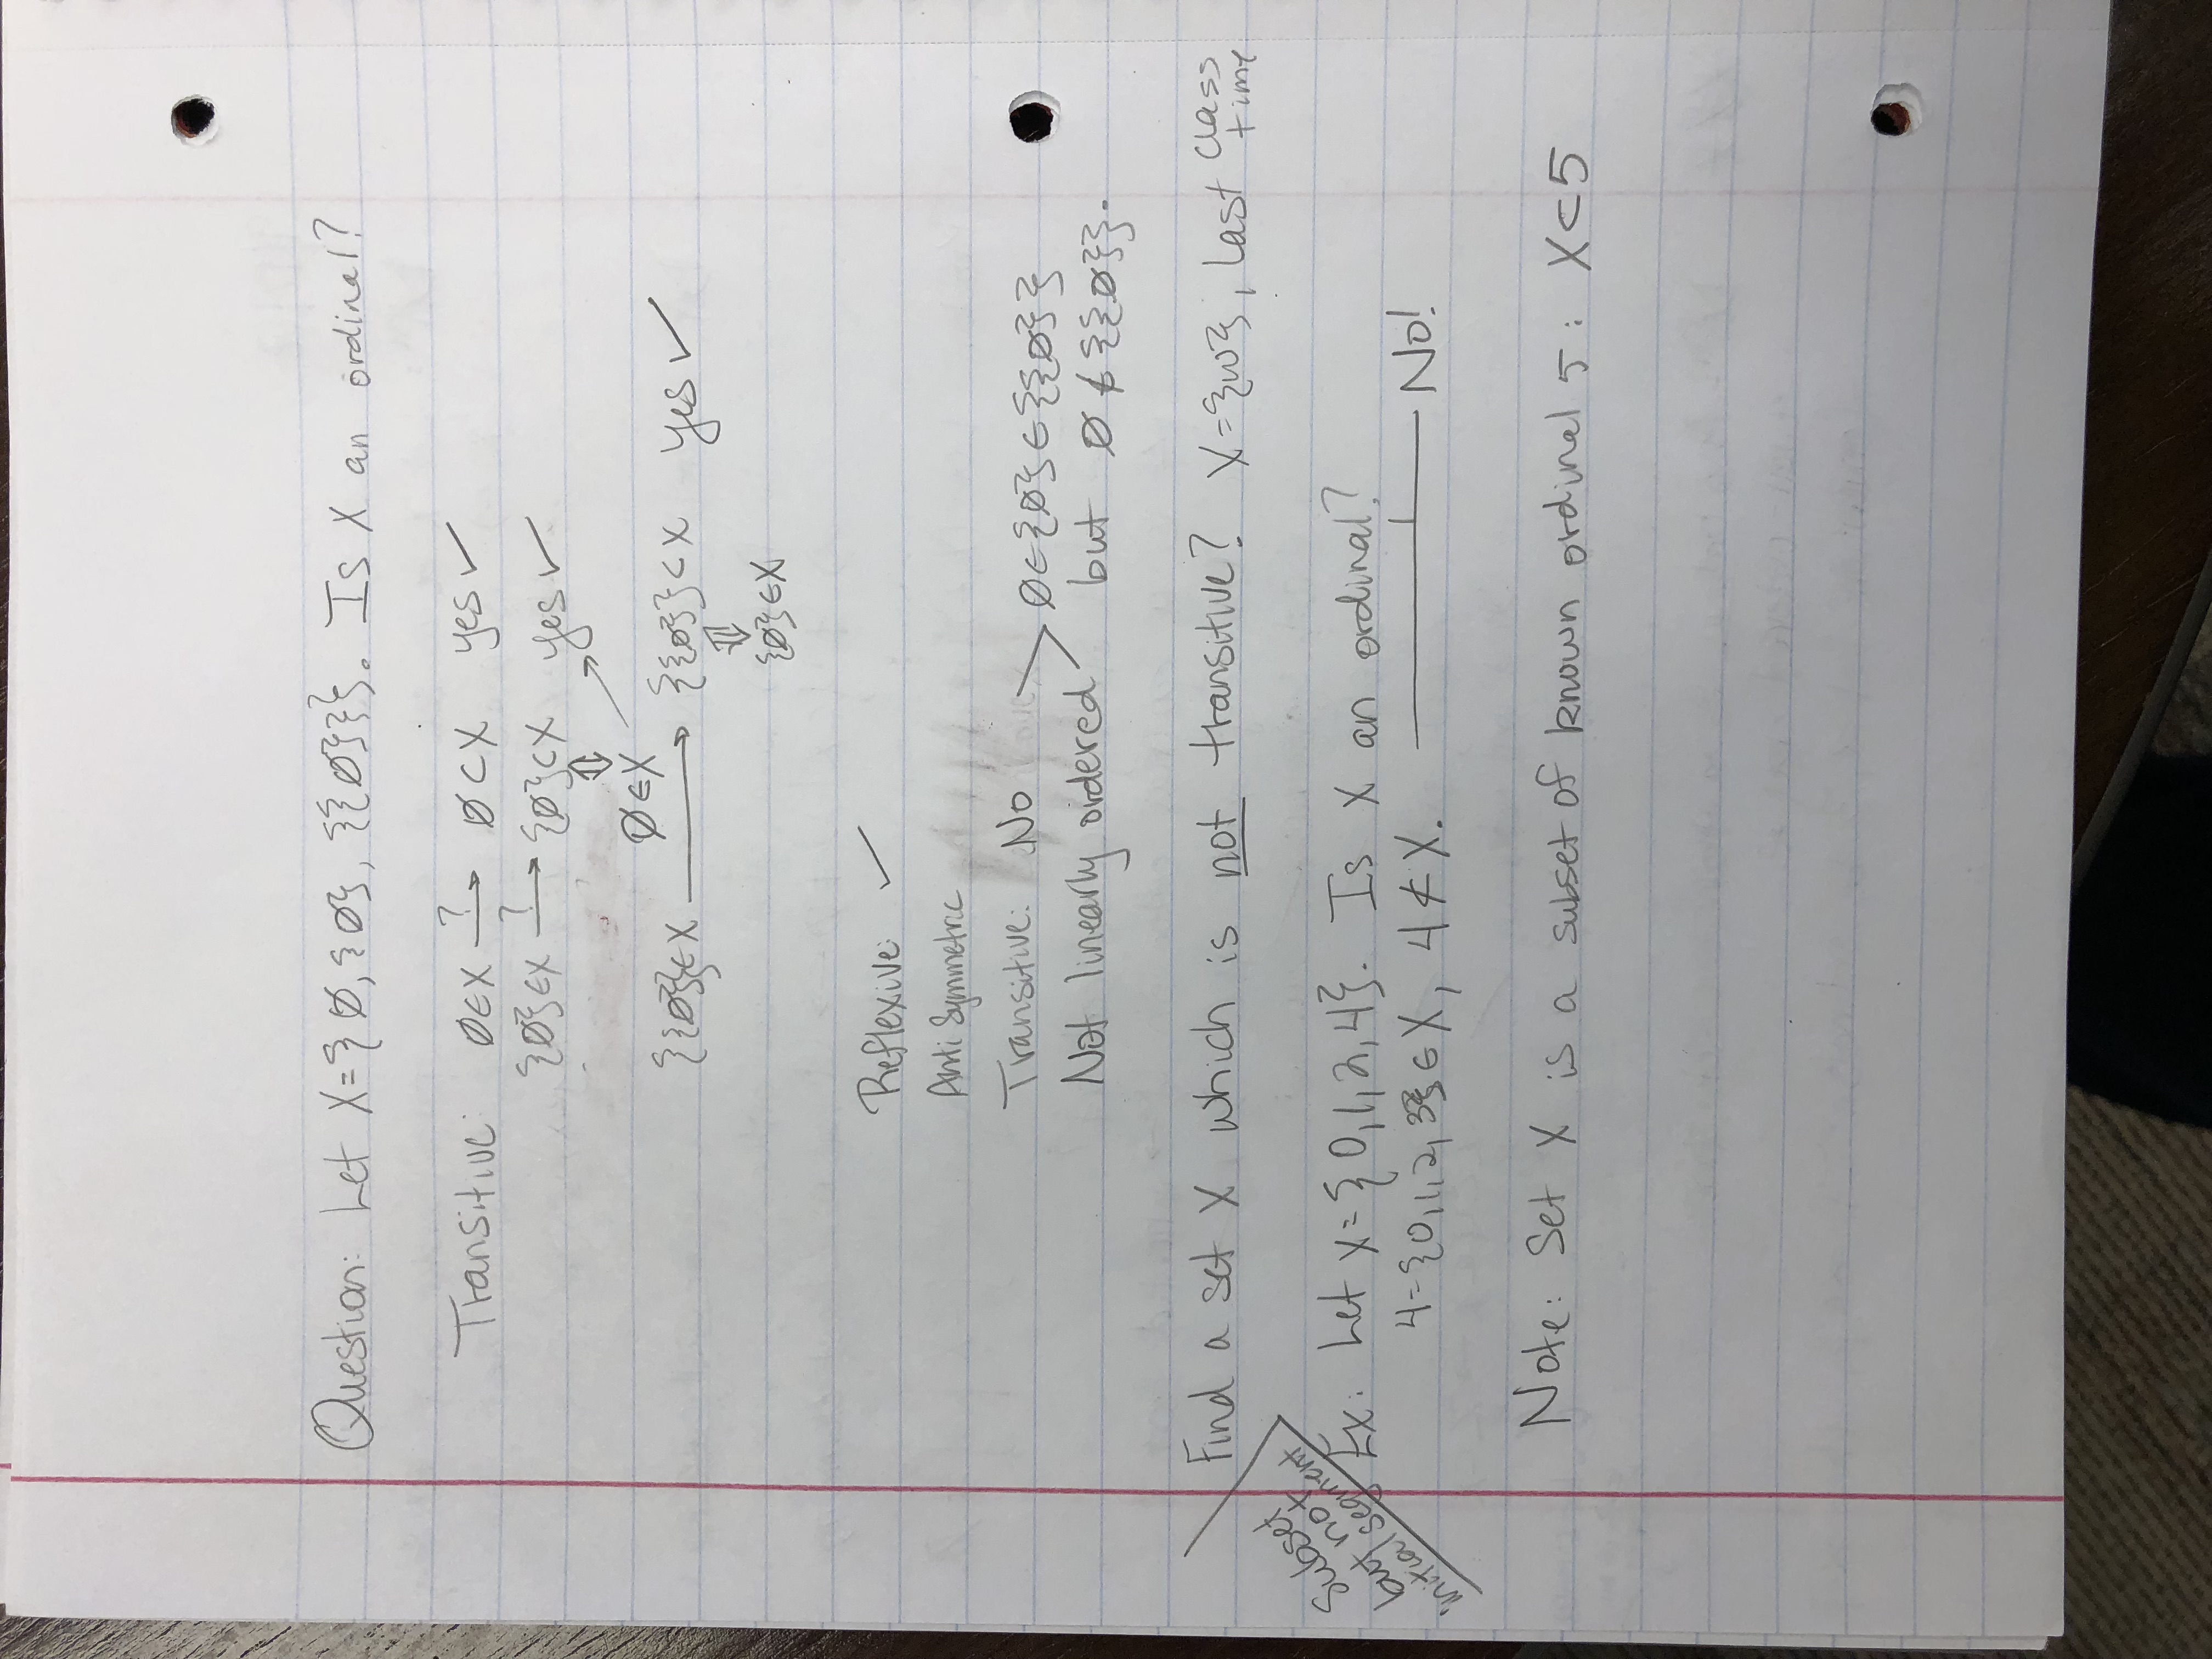 Question: Let X={∅, {∅}, {{∅}}}. Is X an ordinal?
Transitive: ∅∈X —?→ ∅⊂X yes ✓
{∅}∈X —?→ {∅}⊂X yes ✓
⇕
∅∈X ↗
{{∅}}∈X → {{∅}}⊂X yes ✓
⇕
{∅}∈X
Reflexive: ✓
Anti Symmetric
Transitive: No
Not linearly ordered
∅∈{∅}∈{{∅}}
but ∅∉{{∅}}.
Find a set X which is not transitive? X={ω}, last class time
Subset
but not
initial segment
Ex: Let X={0,1,2,4}. Is X an ordinal?
4={0,1,2,3}∈X, 4⊄X. No!
Note: Set X is a subset of known ordinal 5: X⊂5